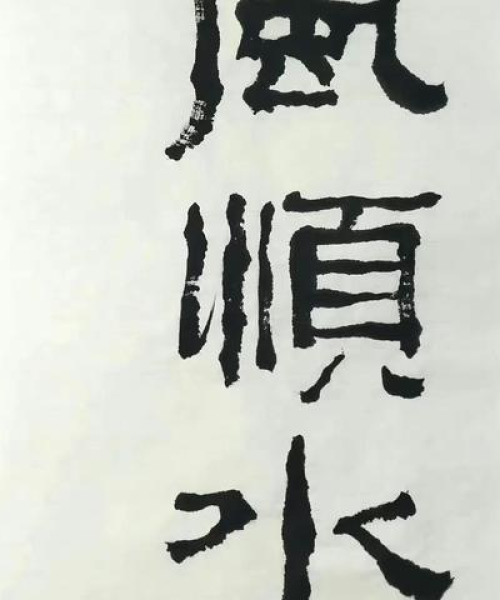 風順水